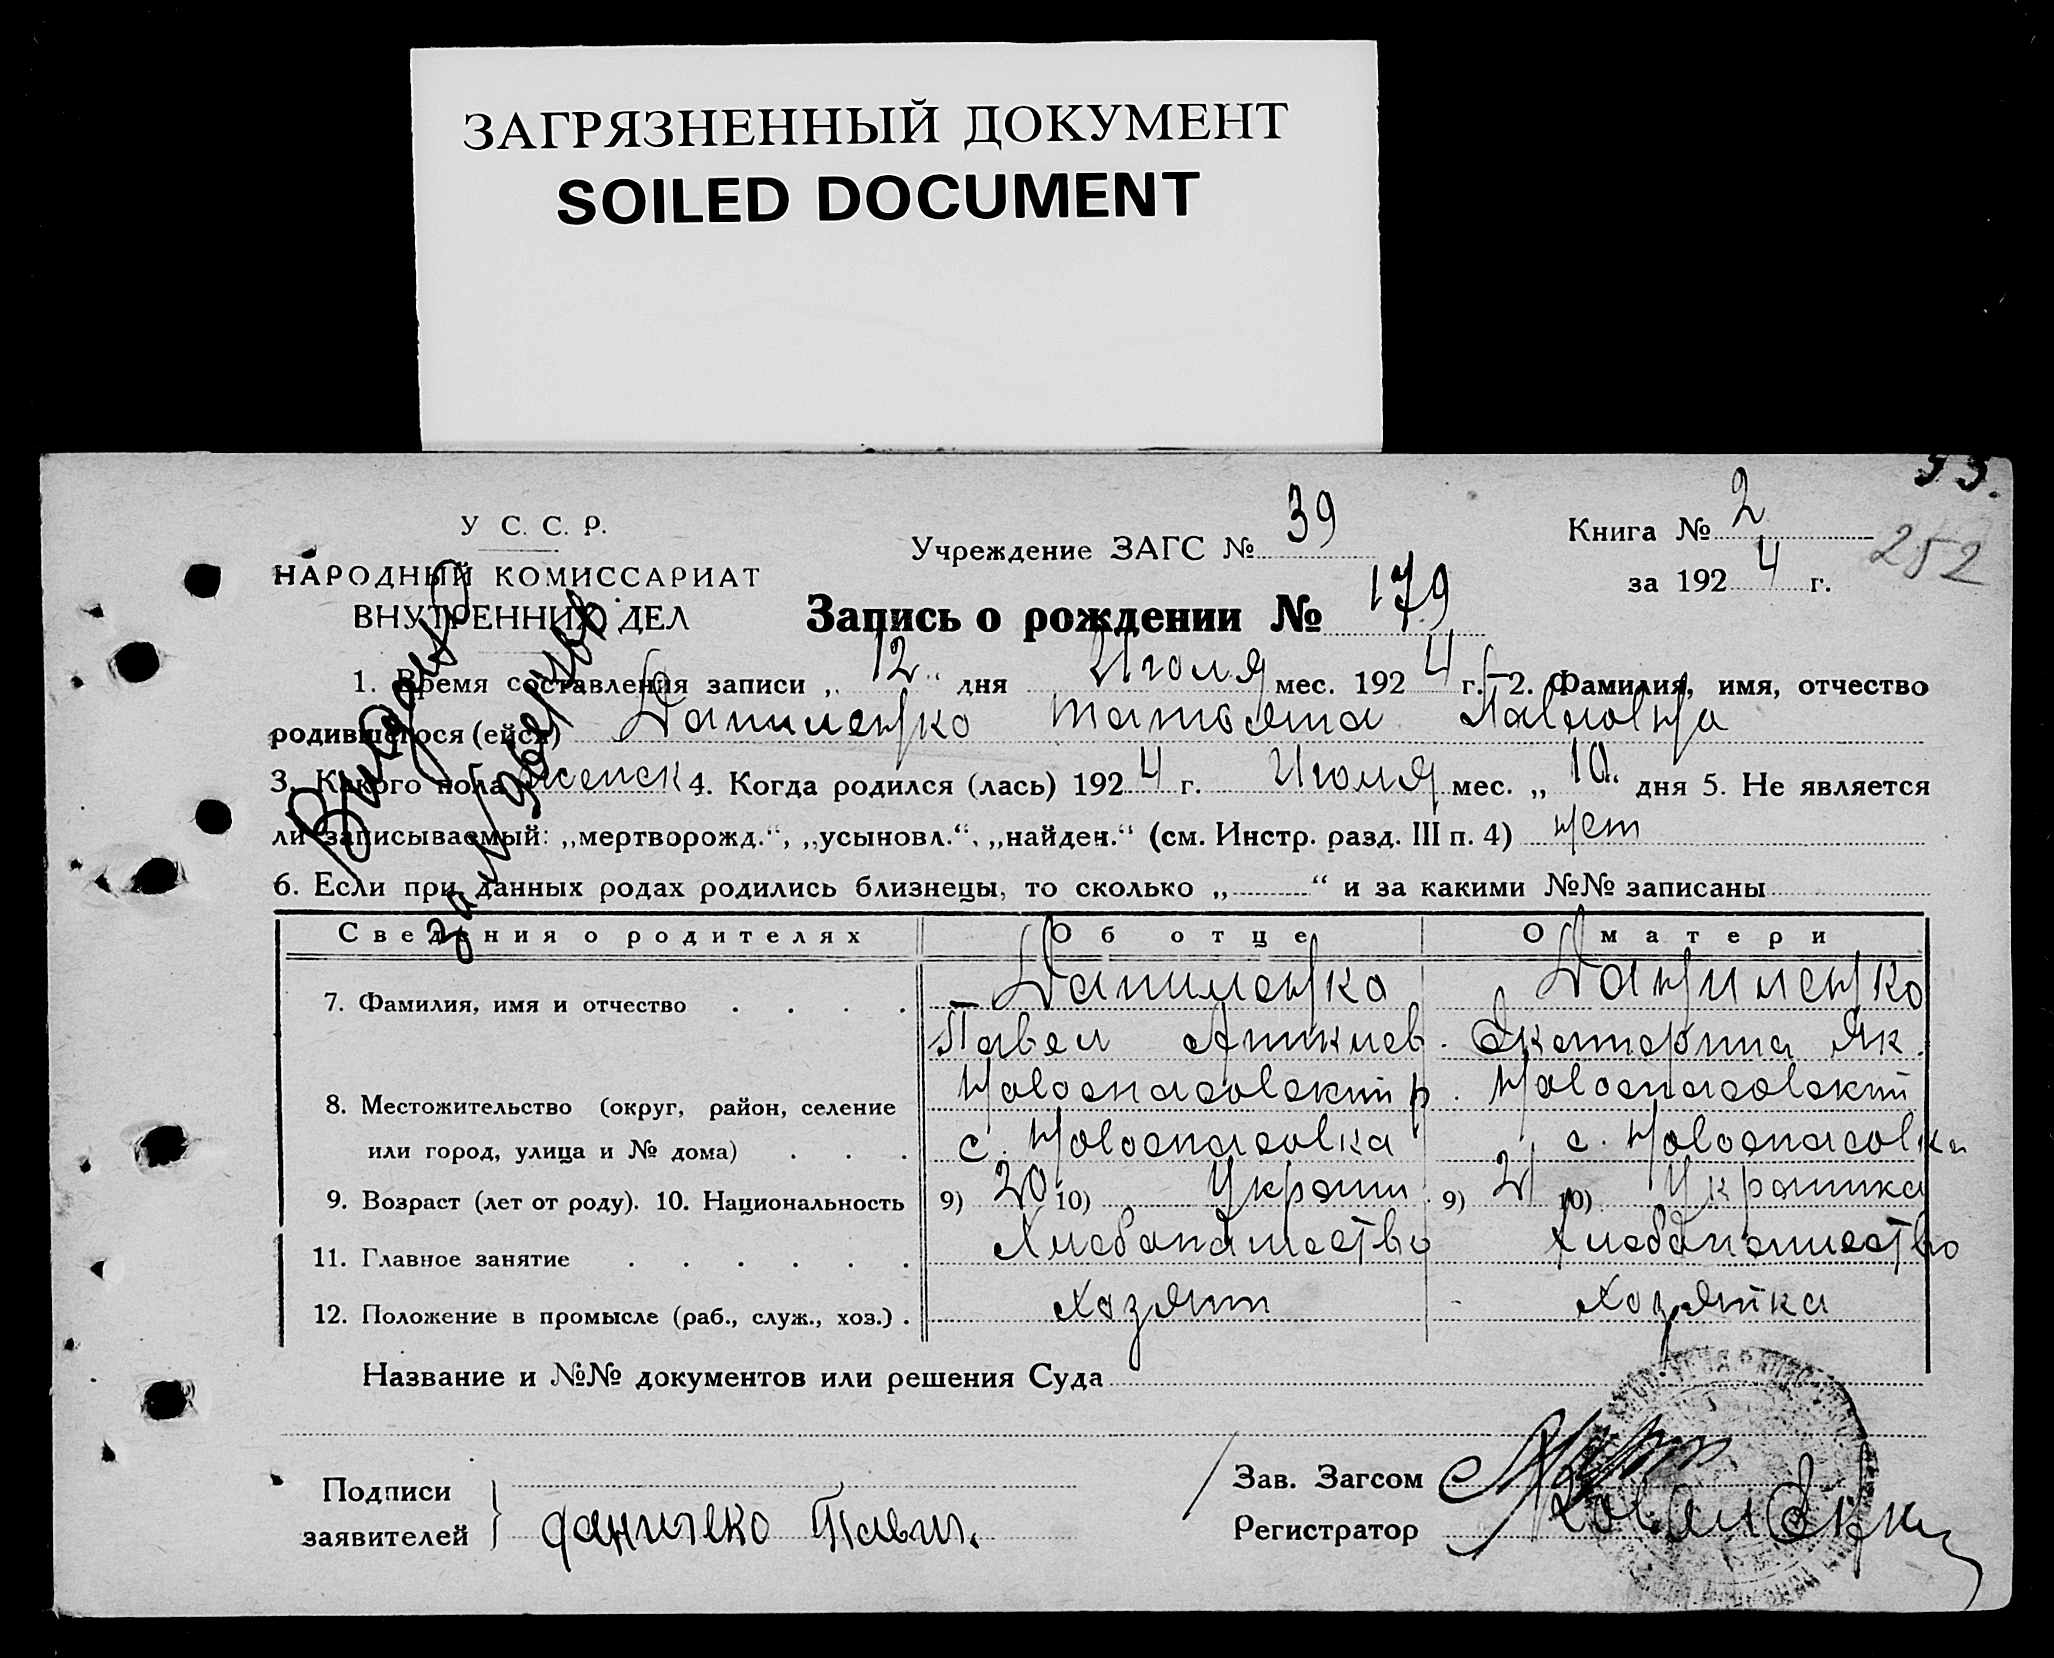 ЗАГРЯЗНЕННЫЙ ДОКУМЕНТ
SOILED DOCUMENT
У С. С. Р.
НАРОДНЫЙ КОМИССАРИАТ
ВНУТРЕННИХ ДЕЛ
Учреждение ЗАГС № 39
Книга № 2
за 1924 г.
252
Запись о рождении № 179
1. Время составления записи „12“ дня Июля мес. 1924 г. 2. Фамилия, имя, отчество
родившегося (ейся) Даниленко Татьяна Павловна
3. Какого пола женск 4. Когда родился (лась) 1924 г. Июля мес. „10“ дня 5. Не является
ли записываемый: „мертворожд.“, „усыновл.“, „найден.“ (см. Инстр. разд. III п. 4) нет
6. Если при данных родах родились близнецы, то сколько „ “ и за какими №№ записаны
Сведения о родителях Об отце О матери
7. Фамилия, имя и отчество Даниленко Даниленко
Павел Екатерина Як.
8. Местожительство (округ, район, селение Новоспасовский р. Новоспасовский
или город, улица и № дома) с. Новоспасовка с. Новоспасовка
9. Возраст (лет от роду). 10. Национальность 9) 20 10) Украин 9) 21 10) Украинка
11. Главное занятие Хлебопашество Хлебопашество
12. Положение в промысле (раб., служ., хоз.) хозяин хозяйка
Название и №№ документов или решения Суда
Подписи
заявителей
Зав. Загсом
Регистратор